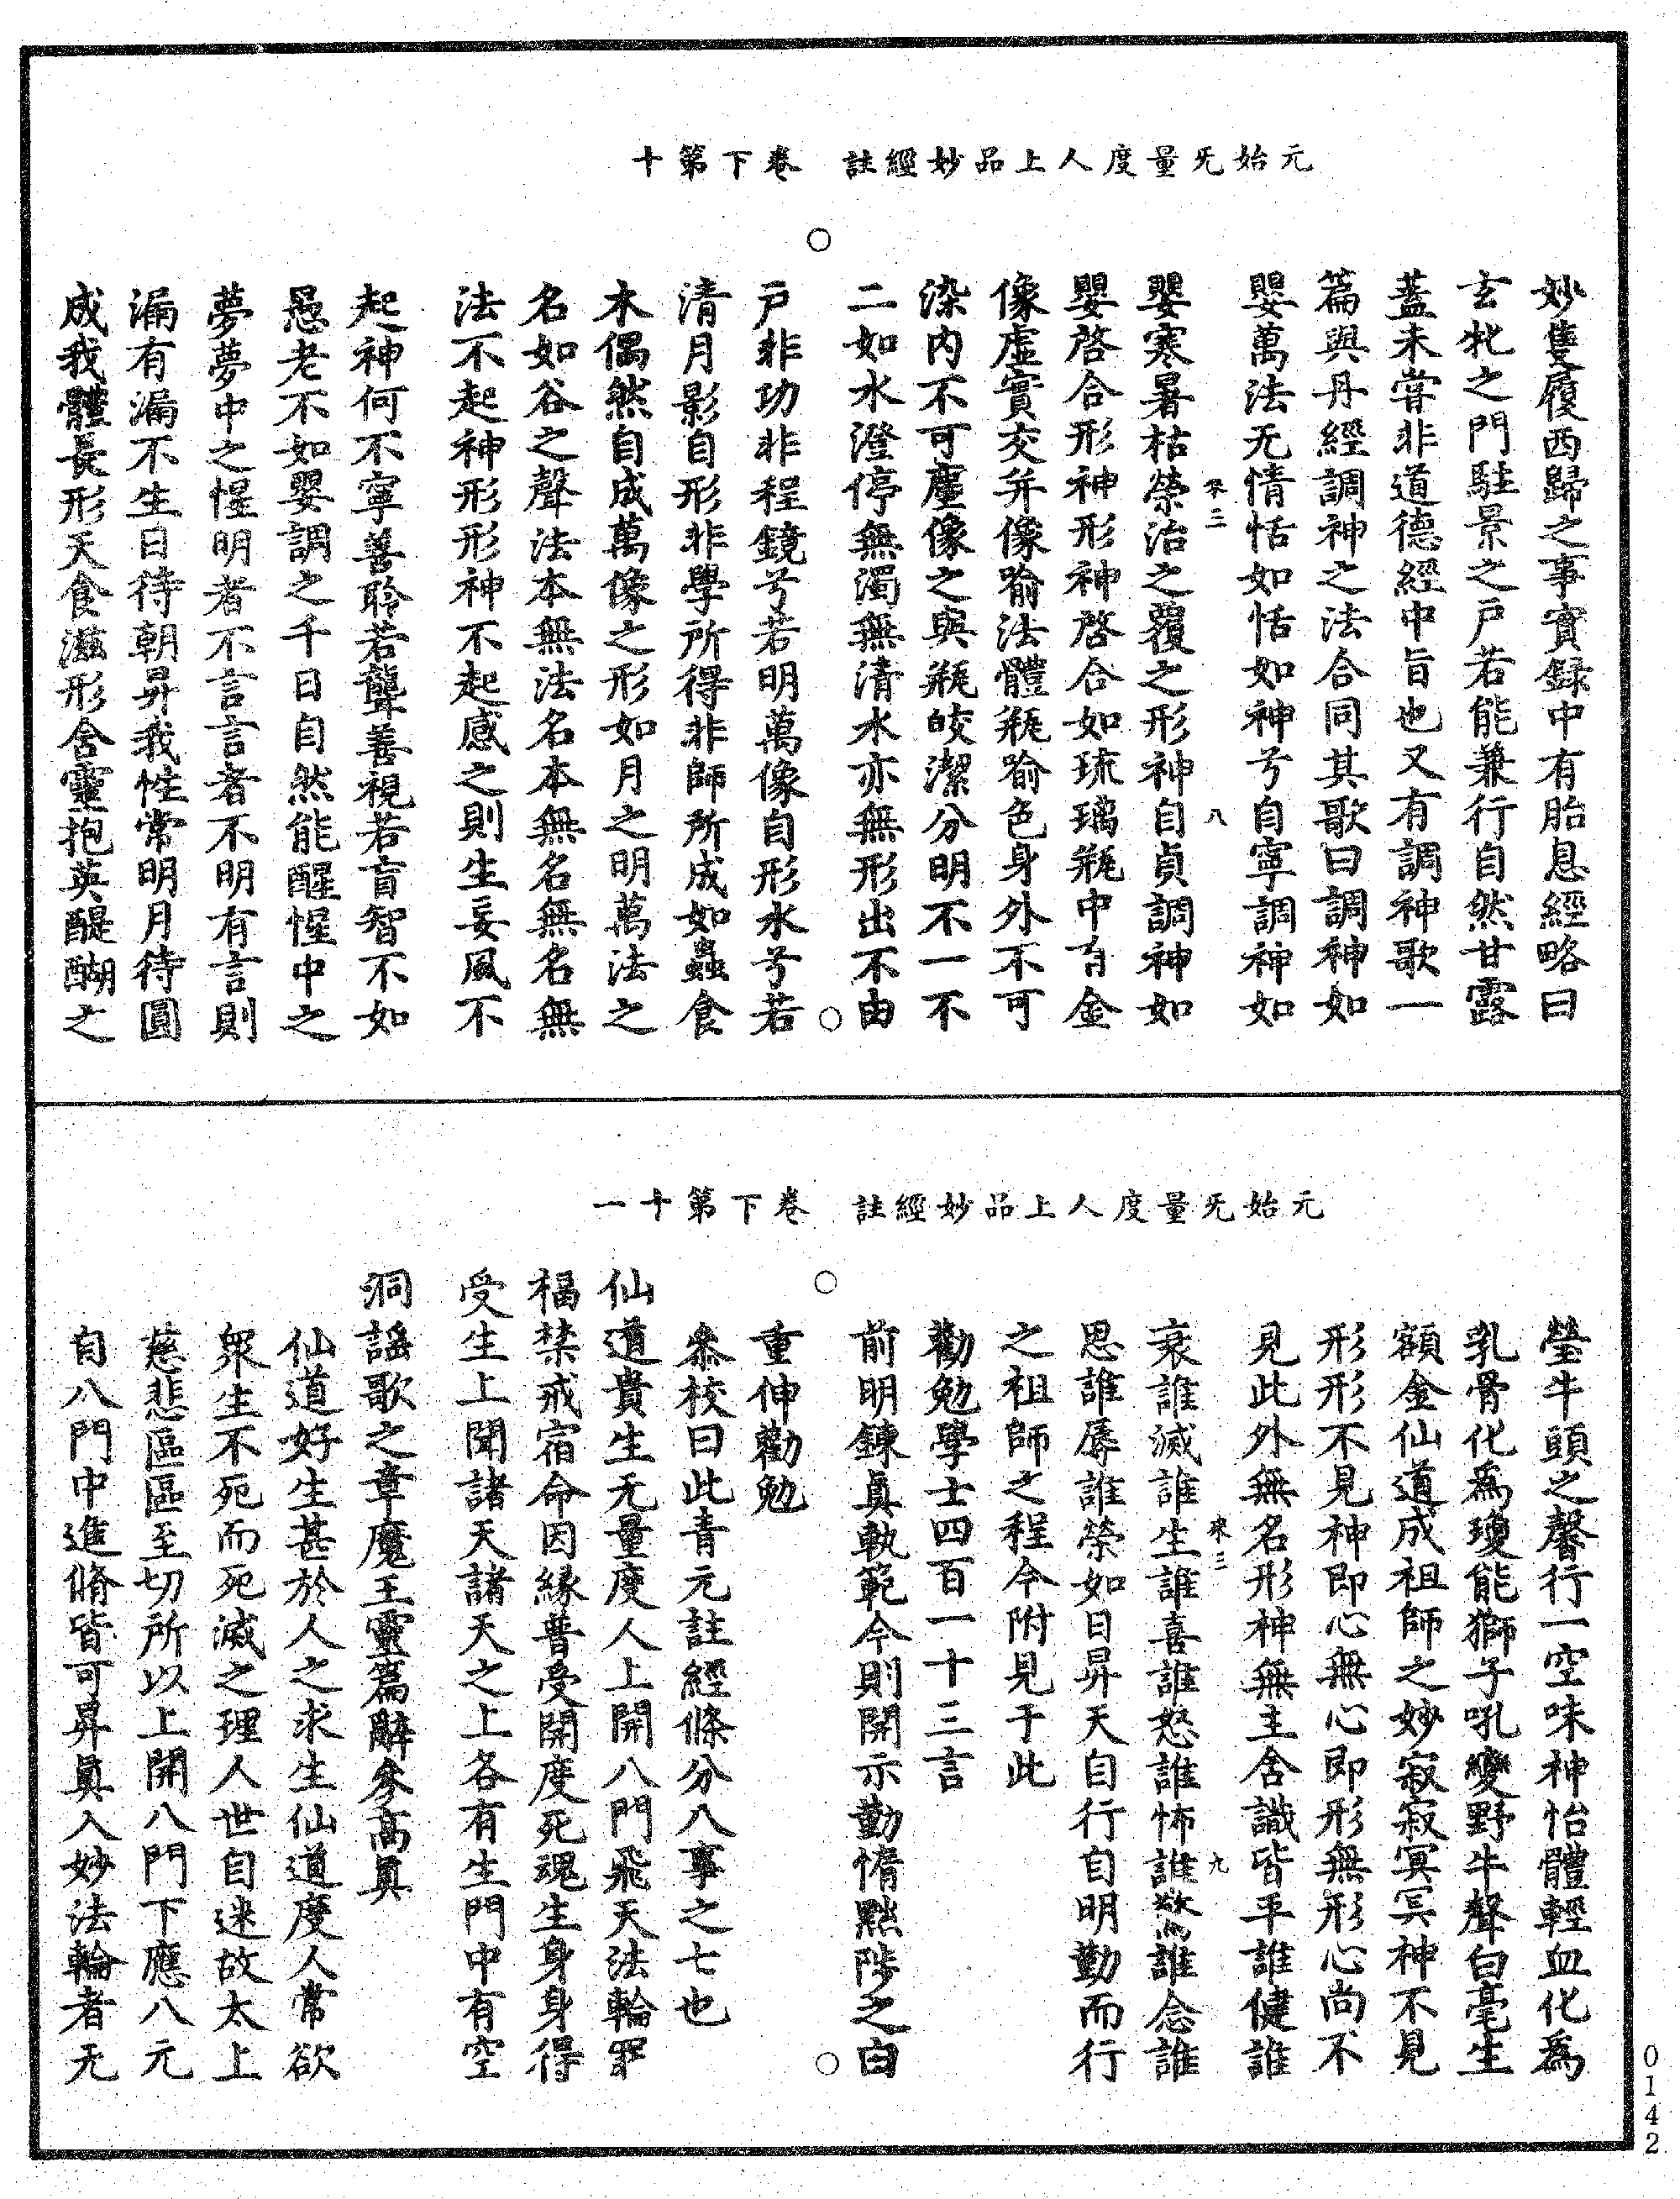 元始旡量度人上品妙經註　卷下第十
妙隻履西歸之事實録中有胎息經略曰
玄牝之門駐景之戸若能兼行自然甘露
蓋未甞非道德經中旨也又有調神歌一
篇與丹經調神之法合同其歌曰調神如
嬰萬法无情恬如恬如神兮自寧調神如
嬰寒暑枯榮治之覆之形神自貞調神如
嬰啓合形神形神啓合如琉璃瓶中有金
像虛實交并像喻法體瓶喻色身外不可
染内不可塵像之與瓶皎潔分明不一不
二如水澄停無濁無清水亦無形出不由
戸非功非程鏡兮若明萬像自形水兮若
清月影自形非學所得非師所成如蟲食
木偶然自成萬像之形如月之明萬法之
名如谷之聲法本無法名本無名名無名無
法不起神形形神不起感之則生妄風不
起神何不寧善聆若聾善視若盲智不如
愚老不如嬰調之千日自然能醒惺中之
夢夢中之惺明者不言言者不明有言則
漏有漏不生日待朝昇我性常明月待圓
成我體長形天食滋形含靈抱英醍醐之
元始旡量度人上品妙經註　卷下第十一
瑩牛頭之馨行一空味神怡體輕血化爲
乳骨化爲瓊能獅子吼變野牛聲白毫生
額金仙道成祖師之妙寂寂冥冥神不見
形形不見神即心無心即形無形心尚不
見此外無名形神無主含識皆平誰健誰
衰誰滅誰生誰喜誰怒誰怖誰驚誰念誰
思誰辱誰榮如日昇天自行自明勤而行
之祖師之程今附見于此
勸勉學士四百一十三言
前明鍊眞軌範今則開示勤惰黜陟之白
重伸勸勉
叅校曰此青元註經條分八事之七也
仙道貴生无量度人上開八門飛天法輪罪
福禁戒宿命因緣普受開度死魂生身身得
受生上聞諸天諸天之上各有生門中有空
洞謡歌之章魔王靈篇辭參高眞
仙道好生甚於人之求生仙道度人常欲
衆生不死而死滅之理人世自迷故太上
慈悲區區至切所以上開八門下應八元
自八門中進脩皆可昇眞入妙法輪者无
來三
八
來三
九
0142